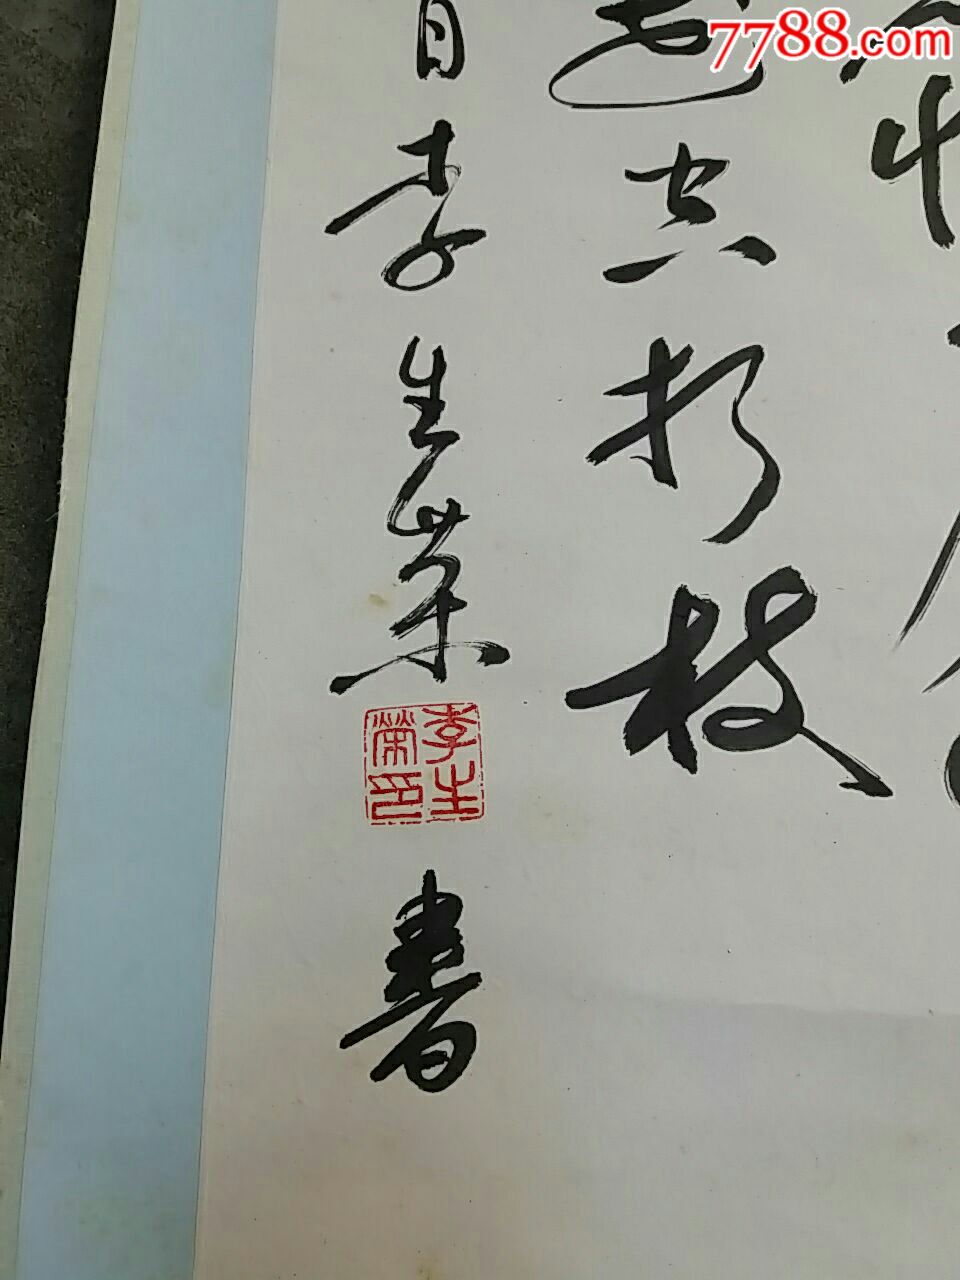 7788.com
花空折枝
李生荣
李生榮印
書